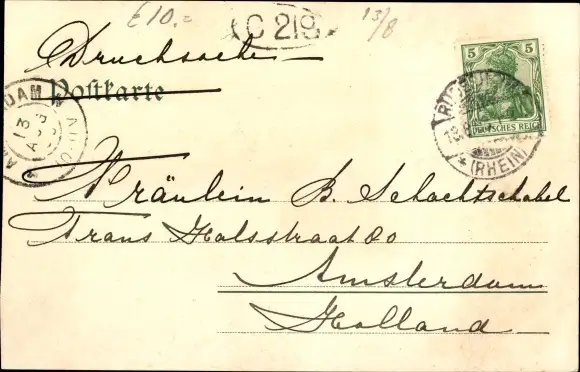 £10.=
C 218
13/8
Drucksache
Postkarte
5 5
DEUTSCHES REICH
(RHEIN)
DAM
13
AUG
Fräulein B. Schachtschabel
Frans Halsstraat 80
Amsterdam
Holland